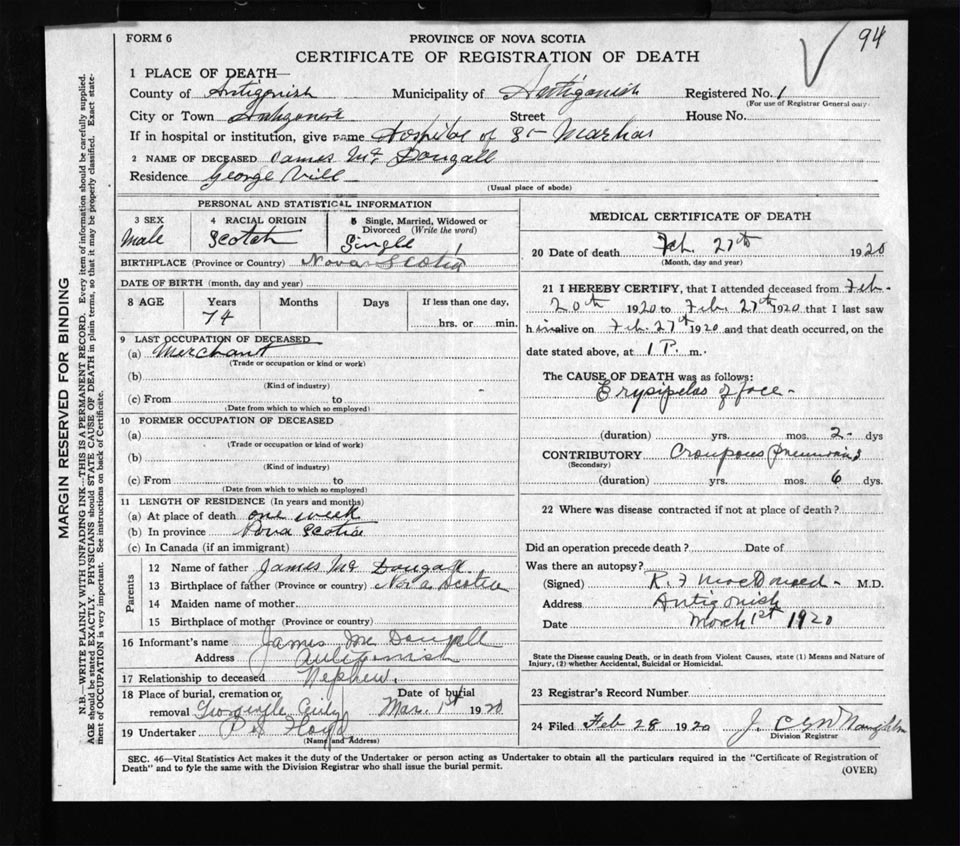 94
FORM 6
PROVINCE OF NOVA SCOTIA
CERTIFICATE OF REGISTRATION OF DEATH
1 PLACE OF DEATH—
County of Antigonish Municipality of Antigonish Registered No. 1
(For use of Registrar General only)
City or Town Antigonish Street House No.
If in hospital or institution, give name Hospital of St Marthas
2 NAME OF DECEASED James Mc Dougall
Residence George Vill
(Usual place of abode)
PERSONAL AND STATISTICAL INFORMATION
3 SEX Male
4 RACIAL ORIGIN Scotch
5 Single, Married, Widowed or Divorced (Write the word) Single
BIRTHPLACE (Province or Country) Nova Scotia
DATE OF BIRTH (month, day and year)
8 AGE Years Months Days If less than one day,
74 hrs. or min.
9 LAST OCCUPATION OF DECEASED
(a) Merchant
(Trade or occupation or kind or work)
(b)
(Kind of industry)
(c) From to
(Date from which to which so employed)
10 FORMER OCCUPATION OF DECEASED
(a)
(Trade or occupation or kind of work)
(b)
(Kind of industry)
(c) From to
(Date from which to which so employed)
11 LENGTH OF RESIDENCE (In years and months)
(a) At place of death one week
(b) In province Nova Scotia
(c) In Canada (if an immigrant)
Parents
12 Name of father James Mc Dougall
13 Birthplace of father (Province or country) Nova Scotia
14 Maiden name of mother
15 Birthplace of mother (Province or country)
16 Informant's name James Mc Dougall
Address Antigonish
17 Relationship to deceased Nephew.
18 Place of burial, cremation or Date of burial
removal Mar. 1st 1920
19 Undertaker Floyd
(Name and Address)
MEDICAL CERTIFICATE OF DEATH
20 Date of death Feb. 27th 1920
(Month, day and year)
21 I HEREBY CERTIFY, that I attended deceased from Feb-
20th 1920 to Feb. 27th 1920 that I last saw
h im alive on Feb. 27th 1920 and that death occurred, on the
date stated above, at 1 P. m.
The CAUSE OF DEATH was as follows:
Erysipelas of face -
(duration) yrs. mos. 2 - dys
CONTRIBUTORY Croupous Pneumonia
(Secondary)
(duration) yrs. mos. 6 dys.
22 Where was disease contracted if not at place of death?
Did an operation precede death? Date of
Was there an autopsy?
(Signed) R. F MacDonald - M.D.
Address Antigonish
Date March 1st 1920
State the Disease causing Death, or in death from Violent Causes, state (1) Means and Nature of
Injury, (2) whether Accidental, Suicidal or Homicidal.
23 Registrar's Record Number
24 Filed Feb 28 1920 J. C
Division Registrar
SEC. 46—Vital Statistics Act makes it the duty of the Undertaker or person acting as Undertaker to obtain all the particulars required in the "Certificate of Registration of
Death" and to fyle the same with the Division Registrar who shall issue the burial permit.
(OVER)
MARGIN RESERVED FOR BINDING
N.B.—WRITE PLAINLY WITH UNFADING INK—THIS IS A PERMANENT RECORD. Every item of information should be carefully supplied.
AGE should be stated EXACTLY. PHYSICIANS should STATE CAUSE OF DEATH in plain terms, so that it may be properly classified. Exact state-
ment of OCCUPATION is very important. See instructions on back of Certificate.